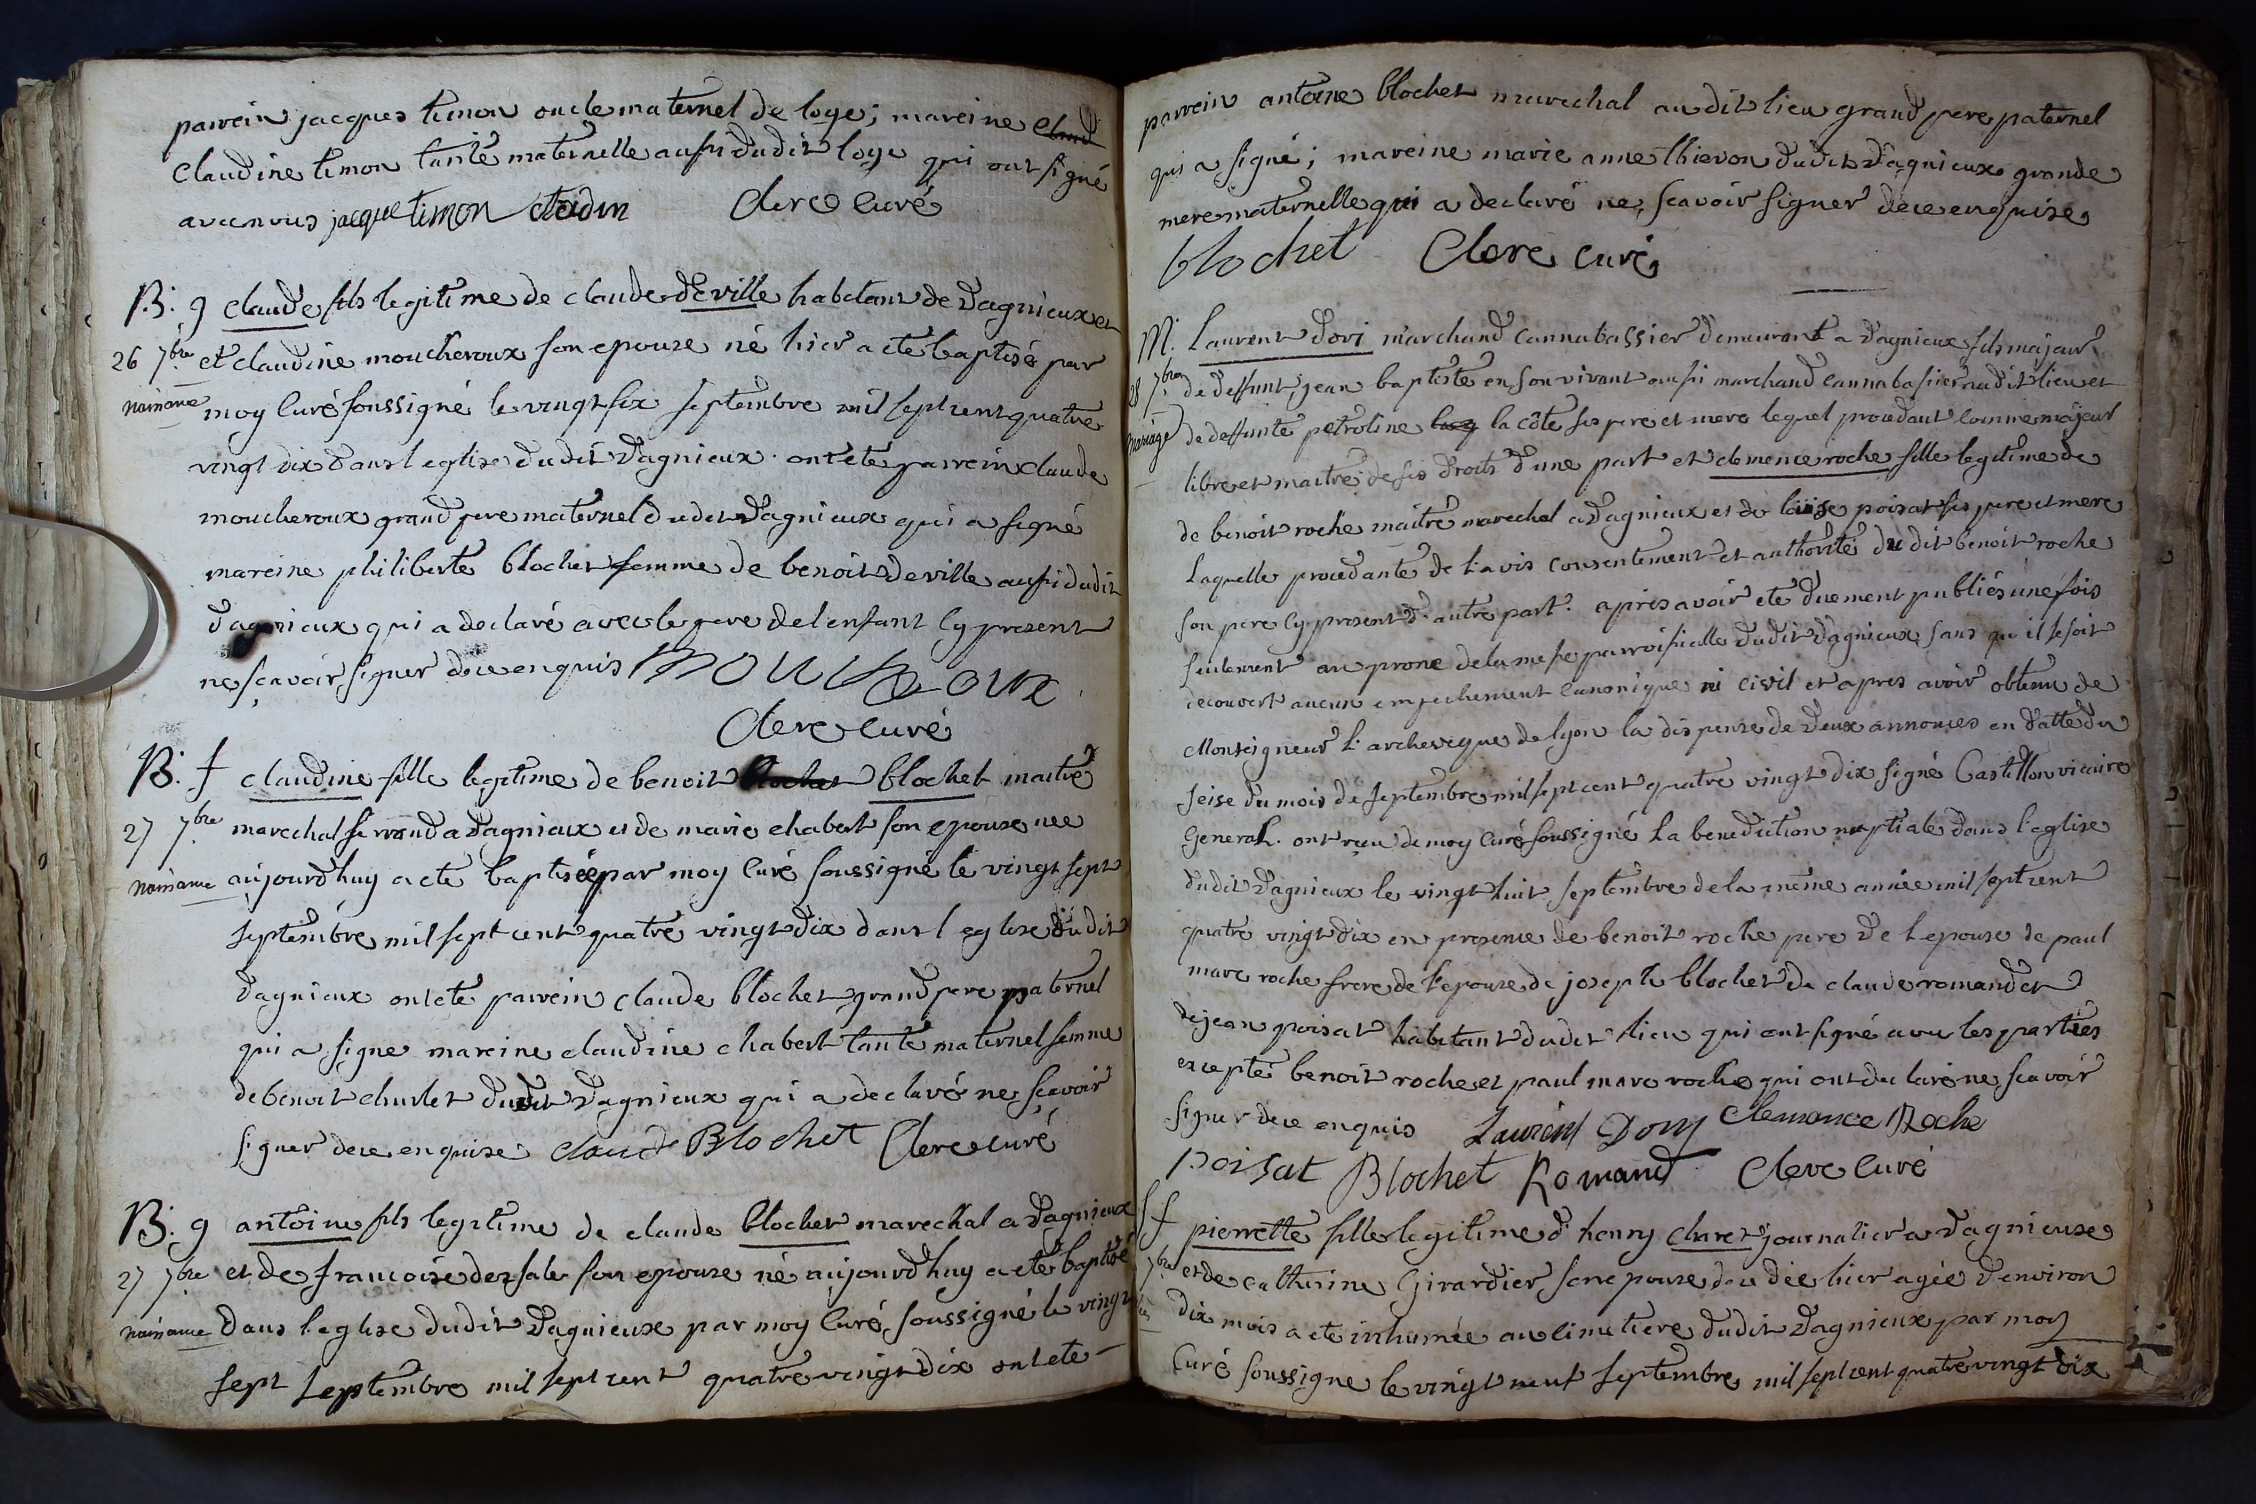 parrein jacques timon oncle maternel de loye; mareine claud
claudine timon tante maternelle aussi dudit loye qui ont signé
avec nous jacque timon clodin Clerc curé
B. g claude fils legitime de claude deville habitant de dagnieux et
26 7bre et claudine moucheroux son epouse né hier a eté baptisé par
naisance moy curé soussigné le vingt six septembre mil sept cent quatre
vingt dix dans l eglise dudit dagnieux. ont eté parrein claude
moucheroux grand pere maternel dudit dagnieux qui a signé
mareine philiberte blochet femme de benoit deville aussi dudit
dagnieux qui a declaré avec le pere de l enfant cy present
ne sçavoir signer de ce enquis mouchroux
Clerc curé
B. f claudine fille legitime de benoit blochet blochet maitre
27 7bre marechal ferrand a dagnieux et de marie chabert son epouse née
naisance aujourdhuy a eté baptisée par moy curé soussigné le vingt sept
septembre mil sept cent quatre vingt dix dans l eglise dudit
dagnieux ont eté parrein claude blochet grand pere paternel
qui a signe mareine claudine chabert tante maternel femme
de benoit churlet dudit dagnieux qui a declaré ne sçavoir
signer de ce enquise claude Blochet Clerc curé
B. g antoine fils legitime de claude blochet marechal a dagnieux
27 7bre et de francoise desale son epouse né aujourdhuy a eté baptisé
naisance dans l'eglise dudit dagnieux par moy curé soussigné le vingt
sept septembre mil sept cent quatre vingt dix ont eté
parrein antoine blochet marechal audit lieu grand pere paternel
qui a signé; mareine marie anne thievon dudit dagnieux grande
mere maternelle qui a declaré ne scavoir signer de ce enquise
blochet Clerc curé
M. Laurent dori marchand cannabassier demeurant a dagnieux fils majeur
28 7bre de deffunt jean baptiste en son vivant aussi marchand cannabassier audit lieu et
mariage de deffunte petroline la côte ses pere et mere lequel procedant comme majeur
libre et maitre de ses droits d'une part et clemence roche fille legitime de
de benoit roche maitre marechal a dagnieux et de louise poisat ses pere et mere
laquelle procedante de l'avis consentement et authorité du dit benoit roche
son pere cy present d'autre part. apres avoir eté duement publiés une fois
seulement au prone de la messe parroissialle dudit dagnieux sans qu il se soit
decouvert aucun empechement canonique ni civil et apres avoir obtenu de
Monseigneur l'archeveque de lyon la dispense de deux annonces en datte du
seise du mois de septembre mil sept cent quatre vingt dix signé Castillon vicaire
general. ont reçu de moy curé soussigné la benediction nuptiale dans l'eglise
dudit dagnieux le vingt huit septembre de la même année mil sept cent
quatre vingt dix en presence de benoit roche pere de l epouse de paul
marc roche frere de l'epouse de joseph blochet de claude romand et
de jean poisat habitant dudit lieu qui ont signé avec les parties
excepté benoit roche et paul marc roche qui ont declaré ne scavoir
signer de ce enquis Laurent Dory Clemance Roche
poisat Blochet Romand Clerc curé
S f pierrette fille legitime d' henry charet journalier a dagnieux
7bre et de catherine Girardier son epouse decedée hier agée d'environ
dix mois a eté inhumée au cimetiere dudit dagnieux par moy
Curé soussigne le vingt neuf septembre mil sept cent quatre vingt dix